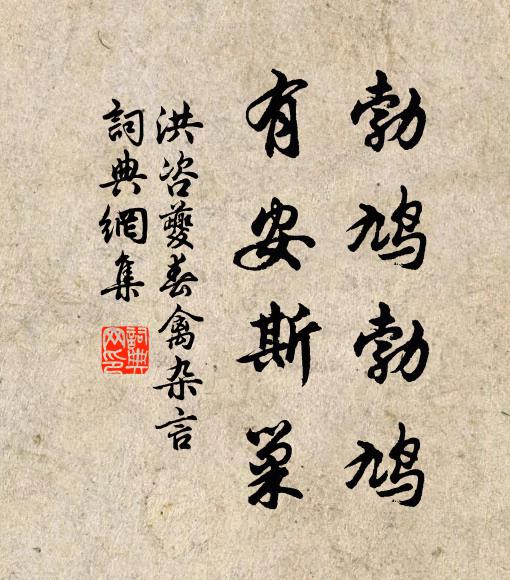 勃鸠勃鸠
有安斯巢
洪咨夔春禽杂言
詞典網集
詞典網印